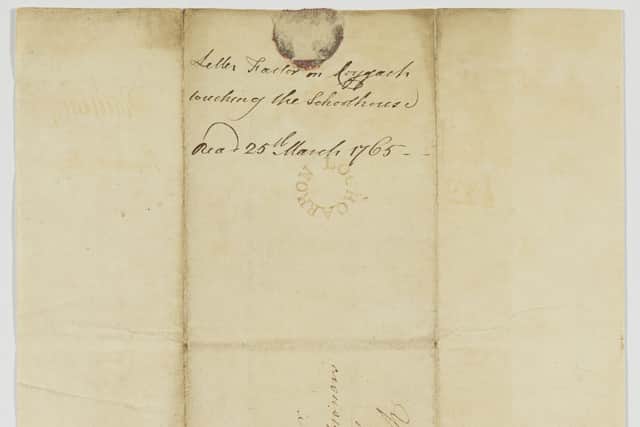 Letter Factor on Coygach
touching the Schoolhouse
Read 25th March 1765 --
LOCHCARRON